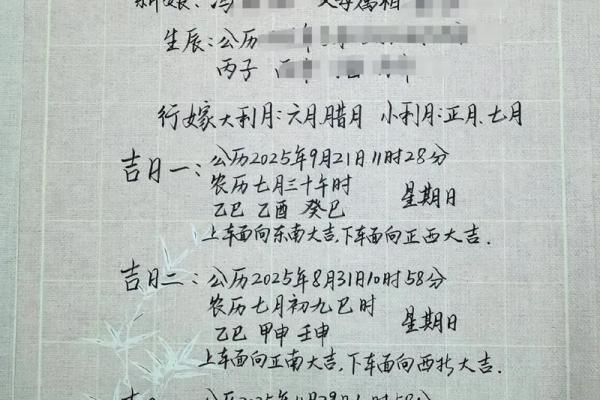 新娘：冯 父母属相
生辰：公历
丙子
行嫁大利月：六月.腊月 小利月：正月.七月
吉日一：公历2025年9月21日11时28分
农历七月三十午时 星期日
乙巳 乙酉 癸巳
上车面向东南大吉,下车面向正西大吉.
吉日二：公历2025年8月31日10时58分
农历七月初九巳时 星期日
乙巳 甲申 壬申
上车面向正南大吉,下车面向西北大吉.